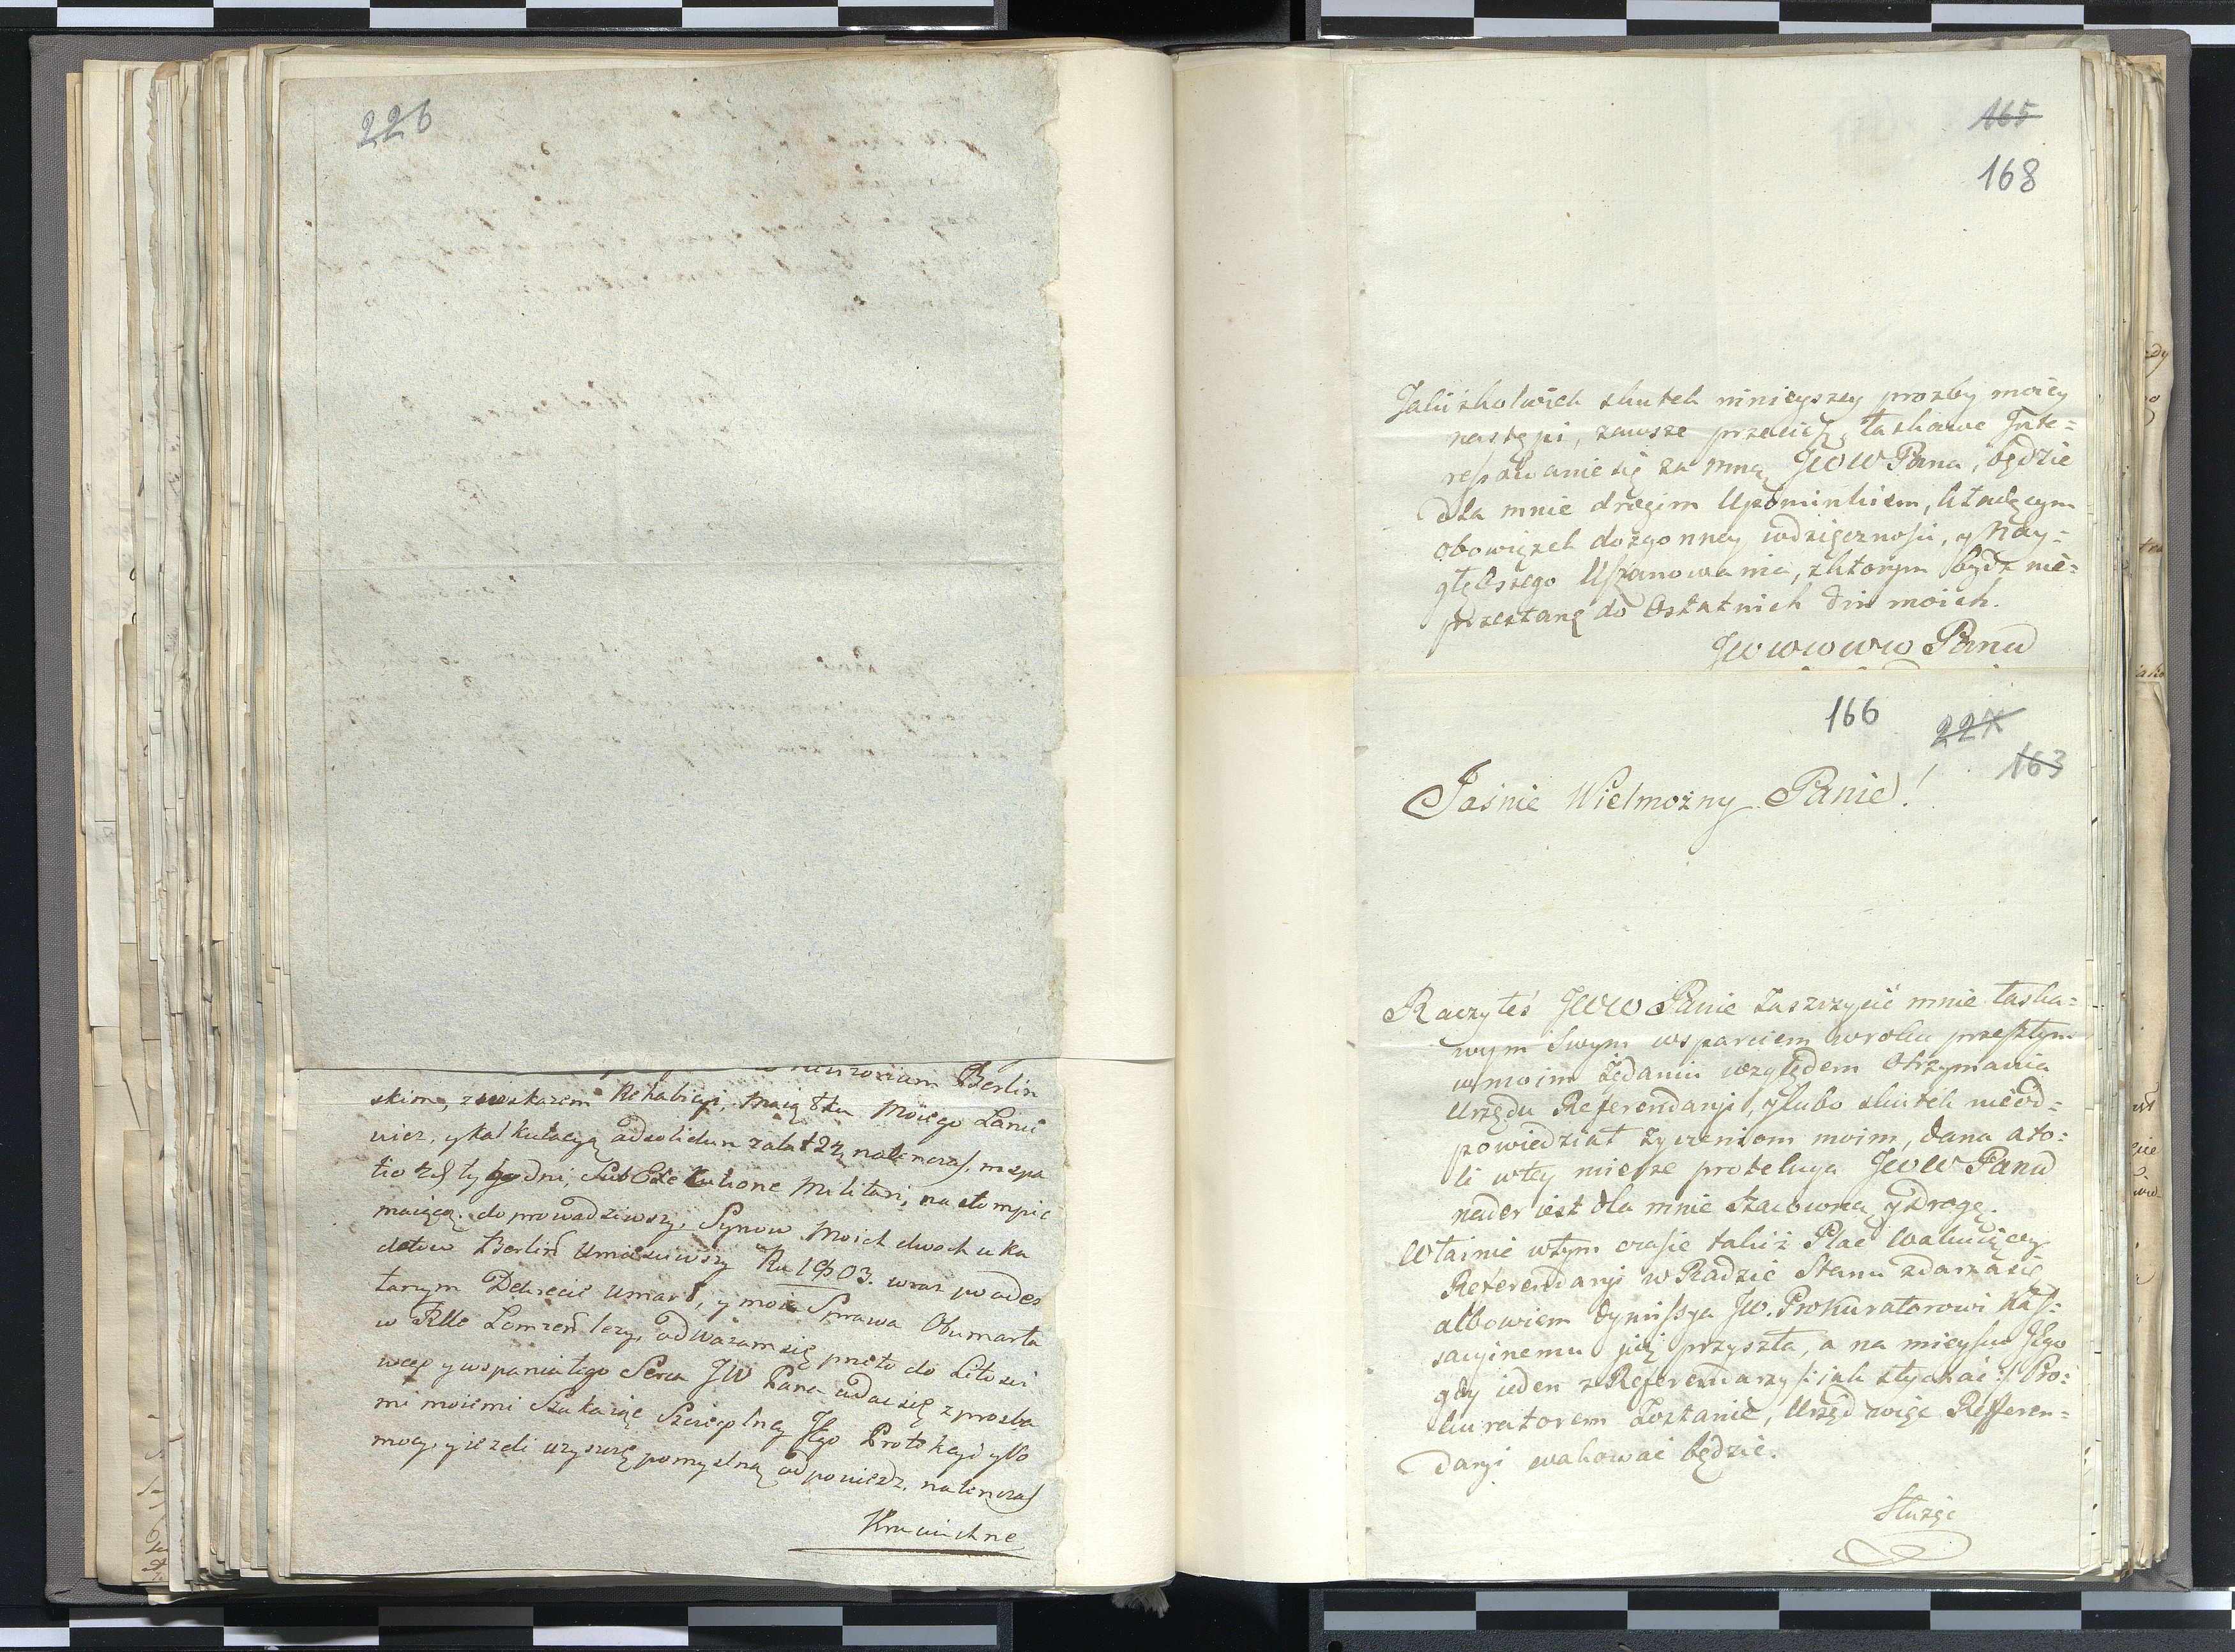 226
Berlin
skim, z wskazem Rehabicyi, Maiątku Moiego Lanie
wicz, y kalkulacyą ad solidum za lat 24, natenczas, in spa
tio 4 tygodni, Sub Exekutione Militari, nastompić
maiącą doprowadziwszy, Synow Moich dwoch u Ka
detow Berlin Umiesciwszy Ru 1803. wraz po ode
Dekrecie Umarł, y moia Sprawa Obumarła
w Lomzen lezy, odwazam się prżeto do Litosci
wego y wspaniałego Serca JW Pana udac się z prozba
mi moiemi Szukaiąc Szczegolney Jego Protekcyi y Po
mocy, y iezeli uzyszczę pomyslną odpowiedz, natenczas
165
168
Jakiżkolwiek skutek ninieyszey prozby moiey
nastąpi, zawsze przecież, łaskawe Inte=
ressowanie się za mną JWW Pana, będzie
dla mnie drogim Upominkiem, kładącym
obowiązek dozgonney wdzięcznosci, y Nay=
głębszego Uszanowania, z ktorym bydź nie=
przestanę do Ostatnich dni moich.
JWWWWW Pana
166
227
163
Jaśnie Wielmożny Panie!
Raczyłeś JWW Panie Zaszczycić mnie łaska=
wym Swym wsparciem w roku przeszłym
w moim Żądaniu względem Otrzymania
Urzędu Referendarji, y lubo skutek nieod=
powiedział życzeniom moim, dana ato=
li w tey mierze protekcya JWW Pana
nader iest dla mnie Szacowną y Drogą.
Właśnie w tym czasie takiż Plac Wakuiący
Referendarji w Radzie Stanu zdarza się
albowiem dymissya JW. Prokuratorowi Kas=
sacyinemu już przyszła, a na mieyscu Jego
gdy ieden z Referendarzy /: jak słychać :/ Pro=
kuratorem Zostanie, Urząd więc Refferen=
darji wakować będzie.
Służąc